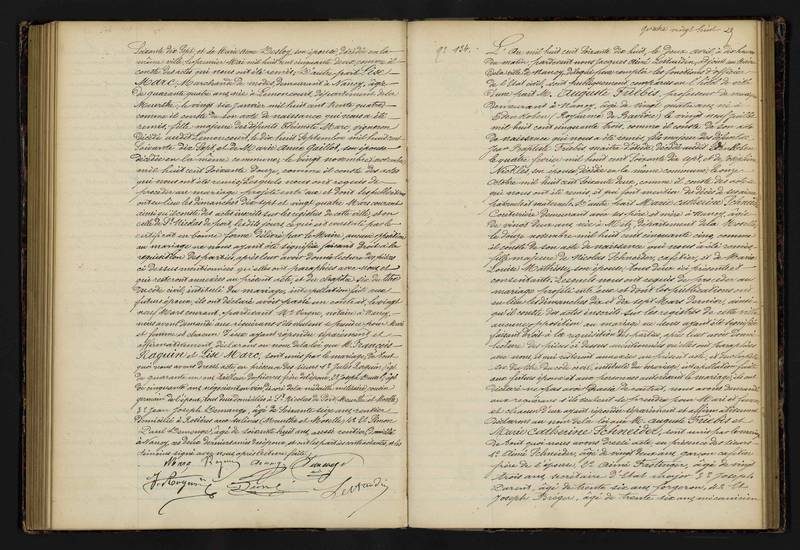 Soixante dix Sept, et de Marie Anne son épouse, décédée en la
même ville, le premier Mai mil huit cent cinquante deux, comme il
conste des actes qui nous ont été remis, D'autre part Lise
Marc, Marchande de modes, demeurant à Nancy, âgée
de quarante quatre ans, née à Lenoncourt, département de la
Meurthe, le vingt six Janvier mil huit cent trente quatre,
comme il conste de son acte de naissance qui nous a été
remis, fille majeure des défunts Marc, vigneron
décédé audit Lenoncourt, le dix huit Septembre mil huit cent
Soixante dix Sept et de Marie Anne Gaillot, son épouse
décédée en la même commune, le vingt novembre
mil huit cent Soixante Douze, comme il conste des actes
qui nous ont été remis, Lesquels nous ont requis de
procéder au mariage projeté entre eux et dont les publications
ont eu lieu les dimanches dix sept et vingt quatre Mars courant
ainsi qu'il conste des actes inscrits sur les registres de cette ville, et en
celle de St Nicolas de port lesdits jours, ce qui est constaté par le
certificat en bonne forme délivré par le Maire, aucune opposition
au mariage ne nous ayant été signifiée, faisant Droit à la
réquisition des parties, après leur avoir donné lecture des pièces
ci dessus mentionnées qu'elles ont paraphées avec nous et
qui resteront annexées au présent acte, et du chapitre six du titre
du code civil, intitulé du mariage, interpellation faite aux
futurs époux, ils ont déclaré avoir passé un contrat, le vingt
neuf Mars courant, pardevant Me notaire à Nancy,
nous avons demandé aux requérants s'ils veulent se prendre pour Mari
et femme et chacun d'eux ayant répondu séparément et
affirmativement déclarons au nom de la loi que M. François
Raguin et Lise Marc, sont unis par le mariage, De tout
quoi nous avons dressé acte en présence des Sieurs 1° Jules Raguin, âgé
de quarante
de cinquante ans,
germain de l'épouse, tous deux domiciliés à St Nicolas de Port, Meurthe et Moselle,
3° Jean Joseph Demange, âgé de Soixante Six ans, rentier
domicilié à (Meurthe et Moselle) 4°
Paul âgé de Soixante huit ans,
à Nancy,
témoins signé avec nous après lecture faite.
Marc Raguin
J. Raguin
N° 134.
L'An mil huit cent Soixante dix huit, le deux avril, à dix heures
du matin, pardevant nous Jacques adjoint au Maire
de la ville de Nancy, délégué pour remplir les fonctions d'officier
de l'Etat civil, sont publiquement comparus en l'hôtel de ville
D'une part M. Auguste Friebis, professeur de musique
demeurant à Nancy, âgé de vingt quatre ans, né à
Edenkoben (Royaume de Bavière) le vingt neuf juillet
mil huit cent cinquante trois, comme il conste de son acte
de naissance qui nous a été remis, fils majeur des défunts
Jean Baptiste Friebis, décédé audit Edenkoben
le quatre février mil huit cent Soixante dix sept et de
Nicklès, son épouse, décédée en la même commune, le onze
Octobre mil huit cent Soixante deux, comme il conste des actes
qui nous ont été remis,
D'autre part Marie Catherine Schneider,
Couturière demeurant avec ses père et mère à Nancy, âgée
de vingt deux ans, née à Metz, Département de la Moselle,
le douze novembre mil huit cent cinquante cinq, comme
il conste de son acte de naissance qui nous a été remis,
fille majeure de Nicolas Schneider, cafetier, et de Marie
Louise Mathieu, son épouse, tous deux ici présents et
consentants. Lesquels nous ont requis de procéder au
mariage projeté entre eux et dont les publications ont
eu lieu les dimanches dix et dix sept Mars dernier, ainsi
qu'il conste des actes inscrits sur les registres de cette ville,
aucune opposition au mariage ne nous ayant été signifiée,
faisant Droit à la réquisition des parties, après leur avoir donné
lecture des pièces ci dessus mentionnées qu'elles ont paraphées
avec nous et qui resteront annexées au présent acte, et du chapitre
six du titre du code civil, intitulé du mariage, interpellation faite
aux futurs époux
déclaré ne pas avoir passé de contrat, nous avons demandé
aux requérants s'ils veulent se prendre pour Mari et femme
et chacun d'eux ayant répondu séparément et affirmativement
déclarons au nom de la loi que M. Auguste Friebis et
Marie Catherine Schneider, sont unis par le mariage,
De tout quoi nous avons dressé acte, en présence des Sieurs
1° Aimé Schneider, âgé de vingt deux ans, garçon cafetier
frère de l'épouse, 2° Aimé âgé de vingt
trois ans, secrétaire d'Etat major, 3° Joseph
âgé de trente six ans, forgeron, et 4°
Joseph âgé de trente six ans, mécanicien